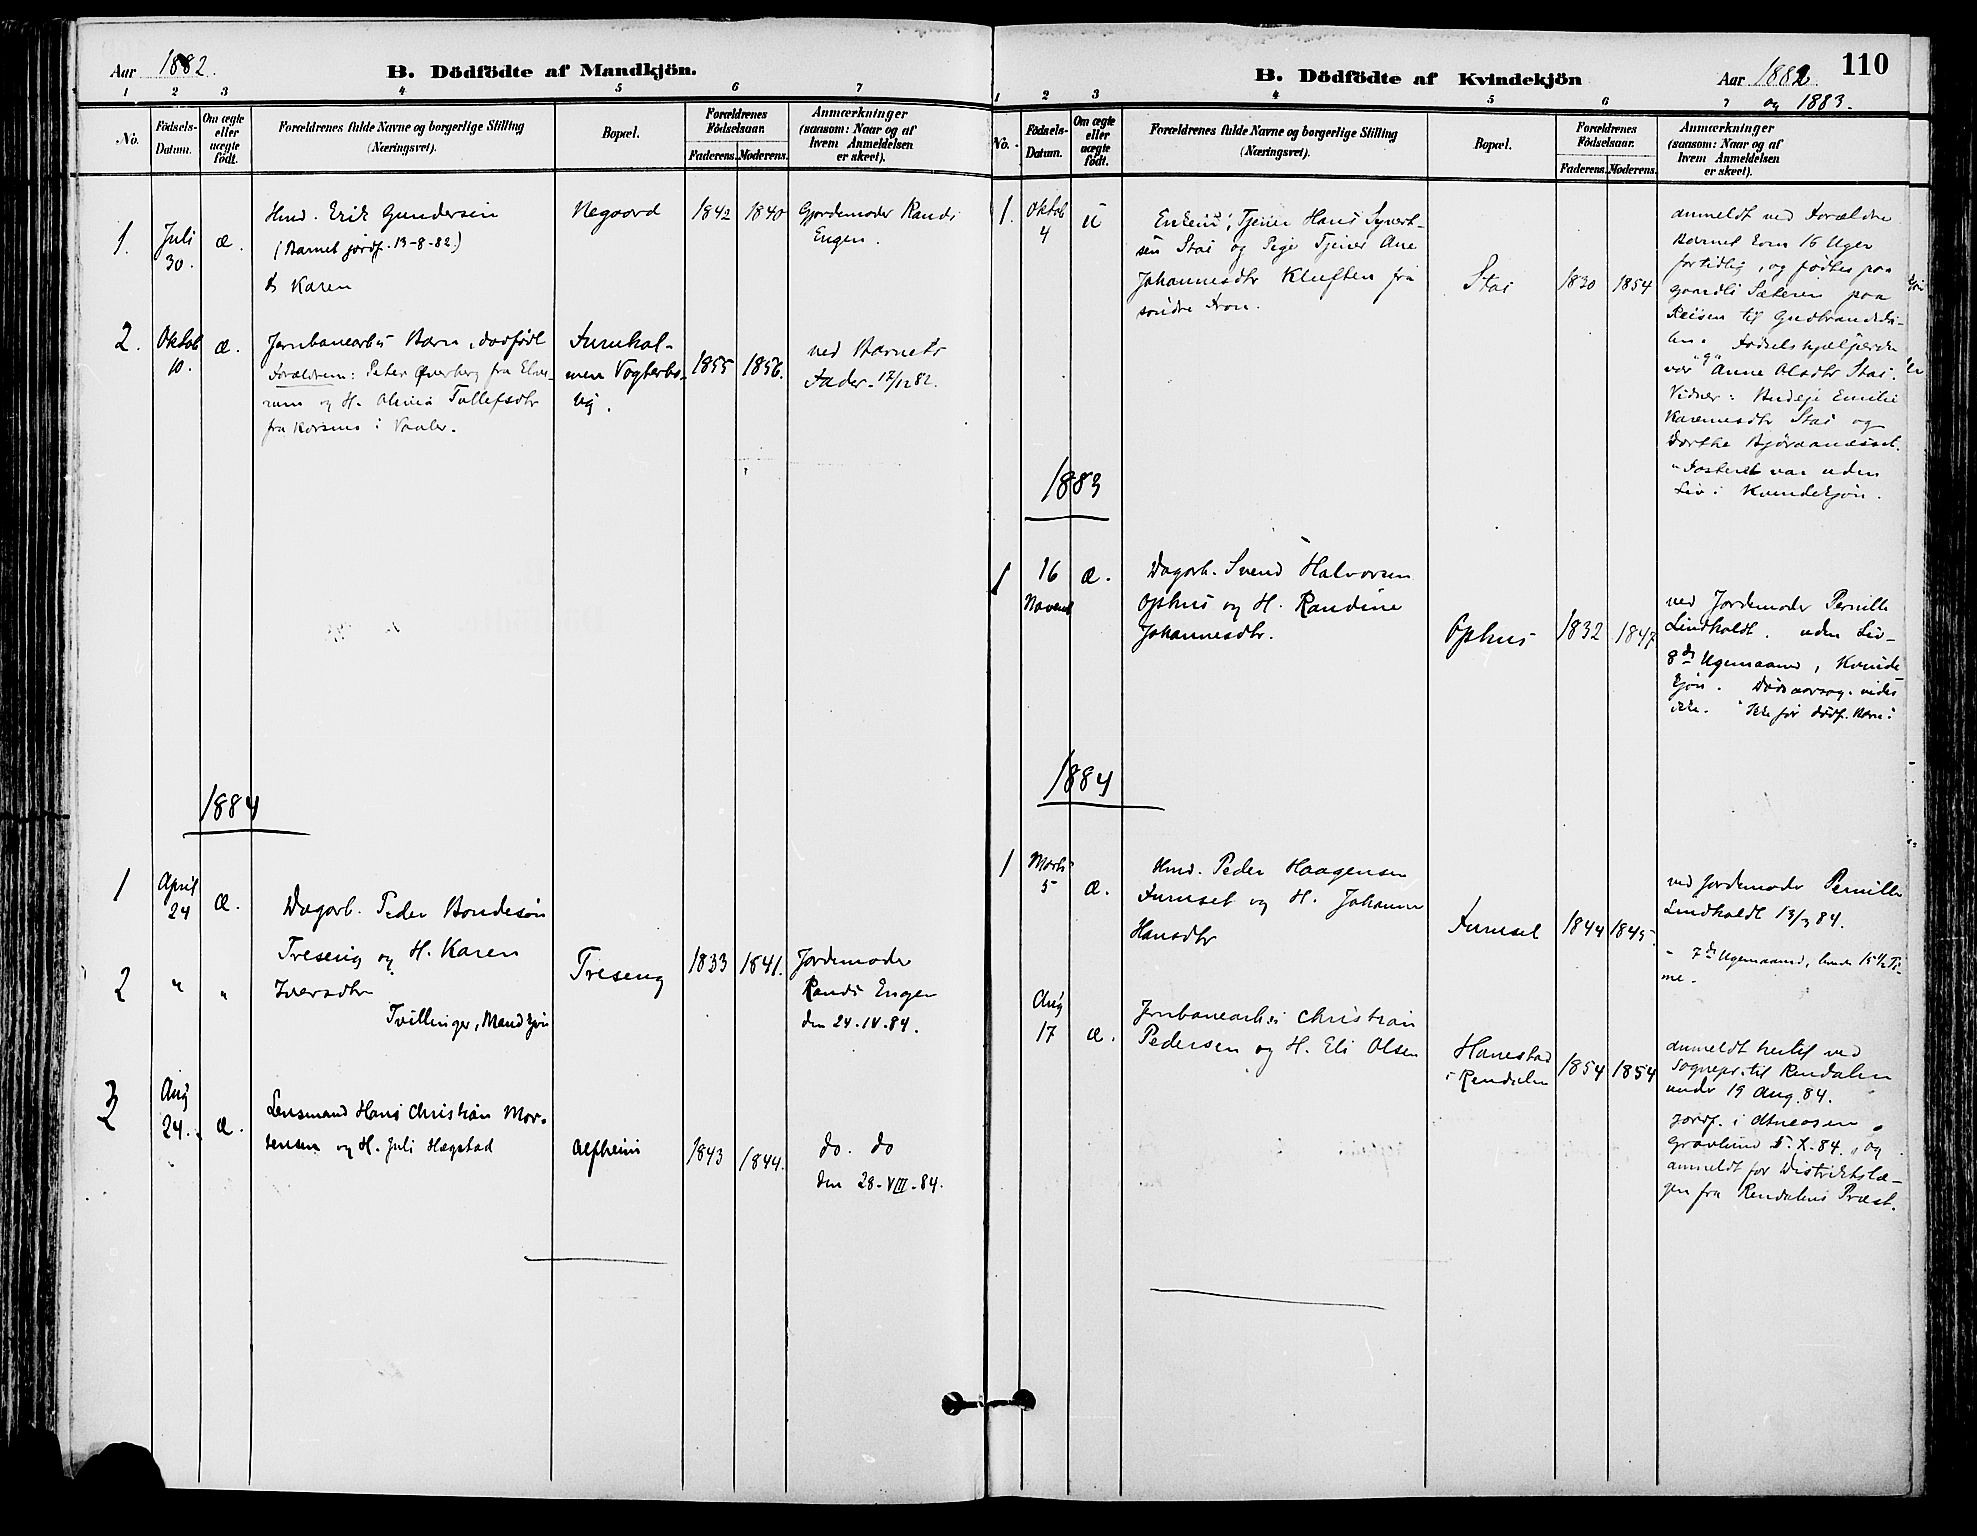 Aar 1882.
B. Dödfödte af Mandkjön.
1 2 3 4 5 6 7
No.
Födsels-Datum.
Om ægte eller uægte født.
Forældrenes fulde Navne og borgerlige Stilling
(Næringsvei).
Bopæl.
Forældrenes Födselsaar.
Faderens. Moderens.
Anmærkninger
(saasom: Naar og af
hvem Anmeldelsen
er skeet).
1. Juli 30. æ.
Hmd. Erik Gundersen
(Barnet jordf. 13-8-82.)
Karen
Negaard
1842 1840
Gjordemoder Randi
Engen.
2. Oktob 10. æ.
Jernbanearb Barn, dødfödt
Forældrene: Peter Øverberg fra Elve-
rum og H. Olivia Tollefsdtr
fra i Vaaler.
Furukol-
men Vogterbo-
lig.
1855 1856.
ved Barnets
Fader. 17/12 82.
1884
1 April 24 æ.
Dagarb. Peder Bondesön
Treseng og H. Karen
2 " "
Iversdtr
Tvillinger, Mandkjön
Treseng
1833 1841.
Jordemoder
Randi Engen
den 24-IV-84.
3 Aug 24. æ.
Lensmand Hans Christian Mor-
tensen og H. Juli Hægstad
Alfheim
1843 1844.
do. do
den 28-VIII-84.
B. Dödfödte af Kvindekjön
Aar 1882
og 1883.
110
1 2 3 4 5 6 7
No.
Födsels-Datum.
Om ægte eller uægte födt.
Forældrenes fulde Navne og borgerlige Stilling
(Næringsvei).
Bopæl.
Forældrenes Födselsaar.
Faderens. Moderens.
Anmærkninger
(saasom: Naar og af
hvem Anmeldelsen
er skeet).
1. Oktob 4 u
Enkem, Tjener Hans Syvert-
sen Stai og Pige Tjener Ane
Johannesdtr Kluften fra
söndre Fron.
Stai
1830 1854
anmeldt ved Forældre
Barnet kom 16 Uger
for tidlig, og födtes paa
Sæteren paa
Reisen til Gudbrandsda-
len. Födselshjælperske
var Anne Olsdtr Stai.
Vidner: Emilie
Karenusdtr Stai og
Dorthe Björaanesset.
Fosteret var uden
Liv i Kvindekjön.
1883
1 16 Novemb æ.
Dagarb. Svend Halvorsen
Ophus og H. Randine
Johannesdtr.
Ophus
1832 1847
ved Jordemoder Pernille
Lindholdt. uden Liv-
8de Ugemaaned, Kvinde
kjön. Dödsaarsag vides
ikke. Ikke før dødf. Barn.
1884
1 Marts 5 æ.
Hmd. Peder Haagensen
Furuset og H. Johanne
Hansdtr
Furuset
1844 1845.
ved Jordemoder Pernille
Lindholdt 13/3 84.
- 7de Ugemaaned, levde 15 1/2 Ti-
me.
Aug 17 æ.
Jernbanearb Christian
Pedersen og H. Eli Olsen
Hanestad
i Rendalen
1854 1854
anmeldt hertil ved
Sognepr. til Rendalen
under 19 Aug. 84.
jordf. i Atneosen
Gravlund 5. X. 84. og
anmeldt for Distriktslæ-
gen fra Rendalens Præst.